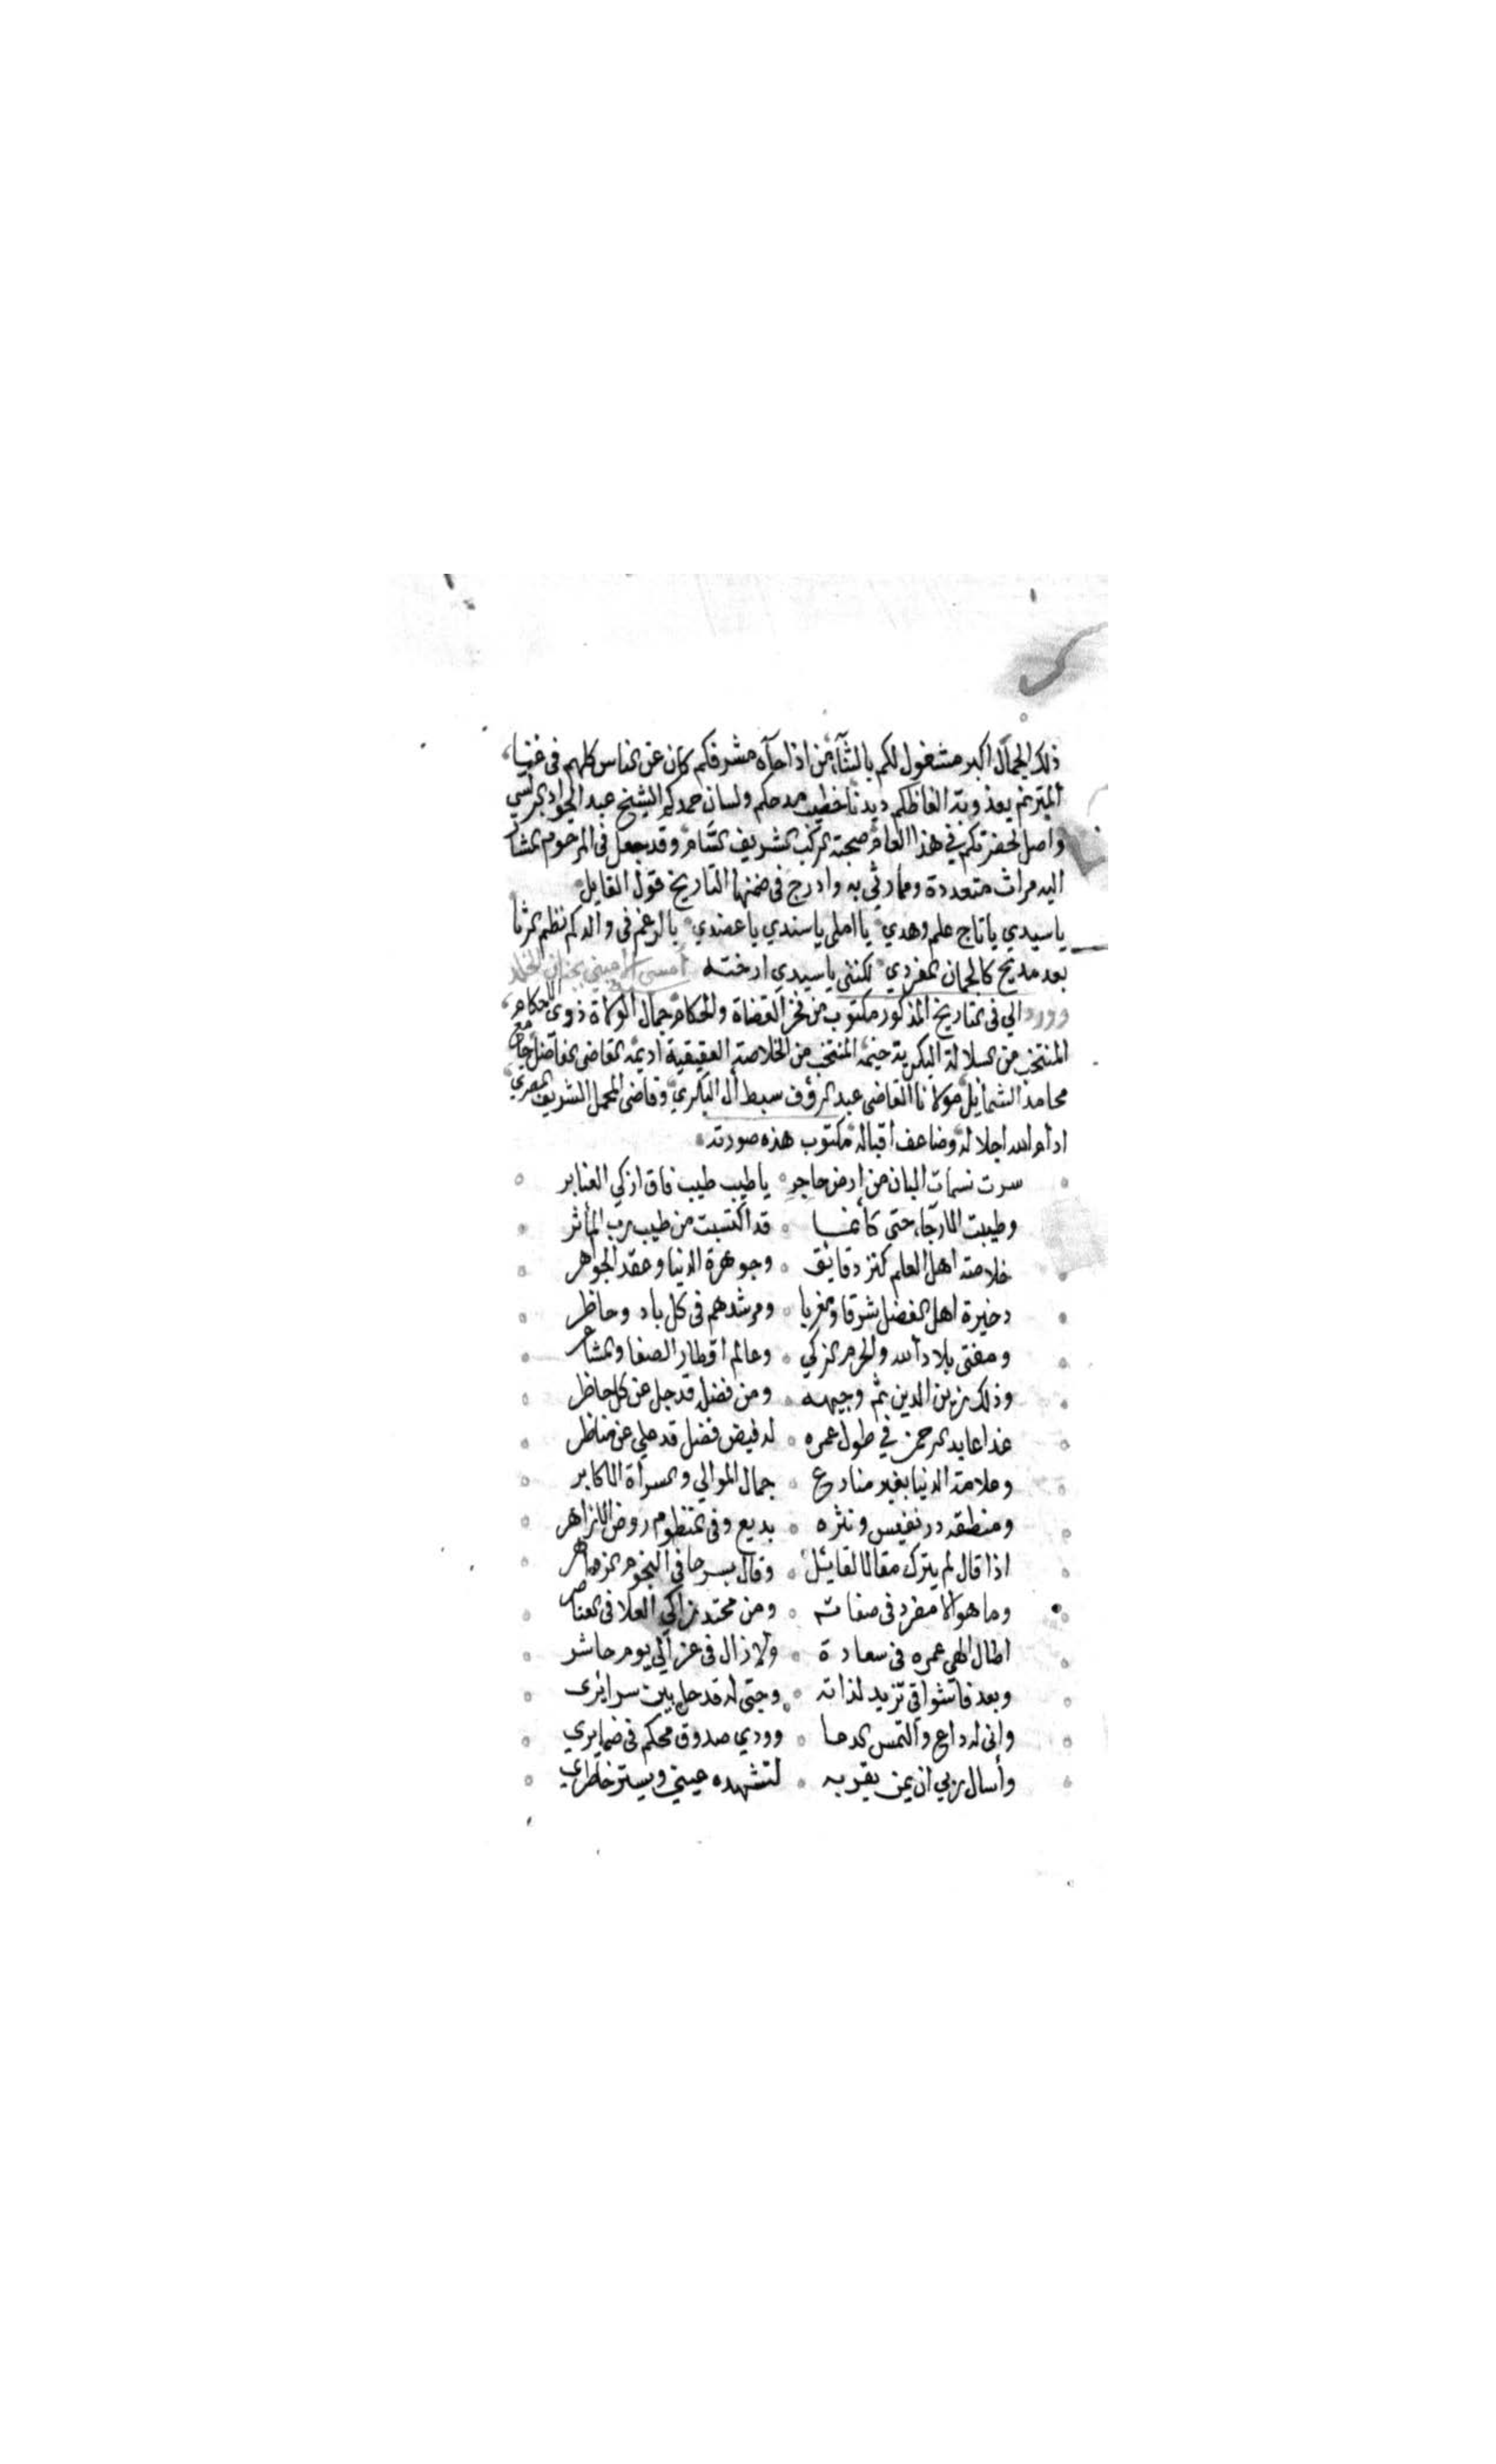 ذلك الجمال اكبر مشغول لكم بالثناء من اذا جآه مشرفكم كان عن الناس كلهم فى غنيا،
المترنم بعذوبة الفاظكم ديدنا خطيب مدحكم ولسان حمدكم الشيخ عبد الجواد البرلسي
واصل لحضرتكم في هذا العام صحبة الركب الشريف الشام وقد جعل فى المرحوم المشار
اليه مراث متعددة ومما رثي به وادرج فى ضمنها التاريخ قول القايل
يا سيدي يا تاج علم وهدي يا املى يا سندي يا عضدي بالرغم فى والدكم نظم الرثا
بعد مديح كالجمان المفردي لكننى يا سيدي ارخته أمسى الأميني بجنان الخلد
وورد الي فى التاريخ المذكور مكتوب من فخر القضاة والحكام جمال الولاة ذوى الاحكام،
المنتخب من السلالة البكرية خيمه المنتخب من الخلاصة العقيقية اديمه القاضى الفاضل جامع
محامد الشمايل مولانا القاضى عبد الرؤف سبط آل البكري وقاضى المحمل الشريف المصري
ادام الله اجلاله وضاعف اقباله مكتوب هذه صورته
سرت نسمات البان من ارض حاجر يا طيب طيب فاق ازكي العنابر
وطيبت الارجاء حتى كأنما قد اكتسبت من طيب رب المأثر
خلاصة اهل العلم كنز دقايق وجوهرة الدنيا وعقد الجواهر
دخيرة اهل الفضل شرقا ومغربا ومرشدهم فى كل باد وحاظر
ومفتى بلاد الله والحرم الزكي وعالم اقطار الصفا والمشاعر
وذلك زين الدين ثم وجيهه ومن فضله قد جل عن كل حاظر
غدا عابد الرحمن في طول عمره له فيض فضل قد علي عن مناظر
وعلامة الدنيا بغير منازع جمال الموالي والسراة الاكابر
ومنطقه در نفيس ونثره بديع وفى المنظوم روض الازاهر
اذا قال لم يترك مقالا لقايئل وقال بسرحا فى النجوم الزواهر
وما هو الا مفرد فى صفاته ومن محتد زاكي العلا فى العناصر
اطال الهي عمره فى سعادة ولا زال فى عز الي يوم حاشر
وبعد فاشواقي تزيد لذاته وحبى له قد حل بين سرايرى
وانى له داع والتمس الدعا وودي صدوق محكم فى ضمايري
وأسال ربي ان يمن بقربه لتشهده عينى ويستر خاطري